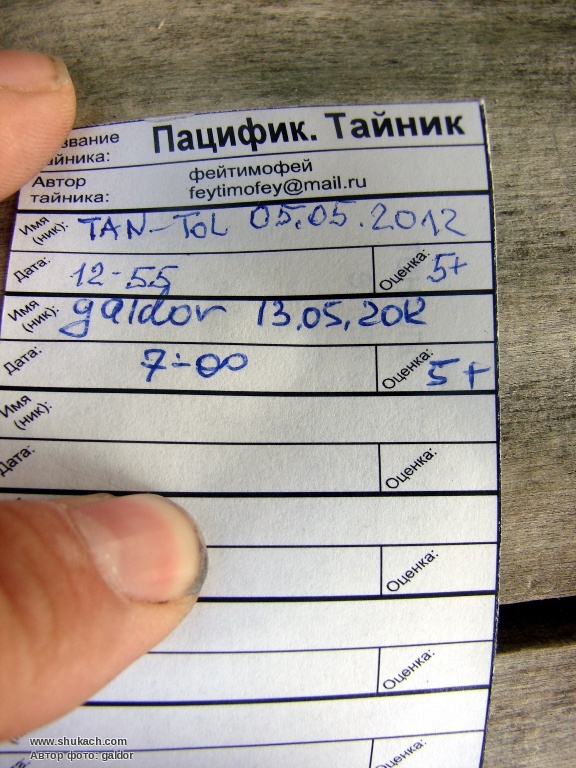 звание Пацифик. Тайник
айника:
Автор фейтимофей
тайника: feytimofey@mail.ru
Имя (ник): TAN-TOL 05.05.2012
Дата: 12-55 Оценка: 5+
Имя (ник): galdor 13.05.2012
Дата: 7-00 Оценка: 5+
Имя (ник):
Дата: Оценка:
Оценка:
Оценка:
Оценка:
www.shukach.com
Автор фото: galdor